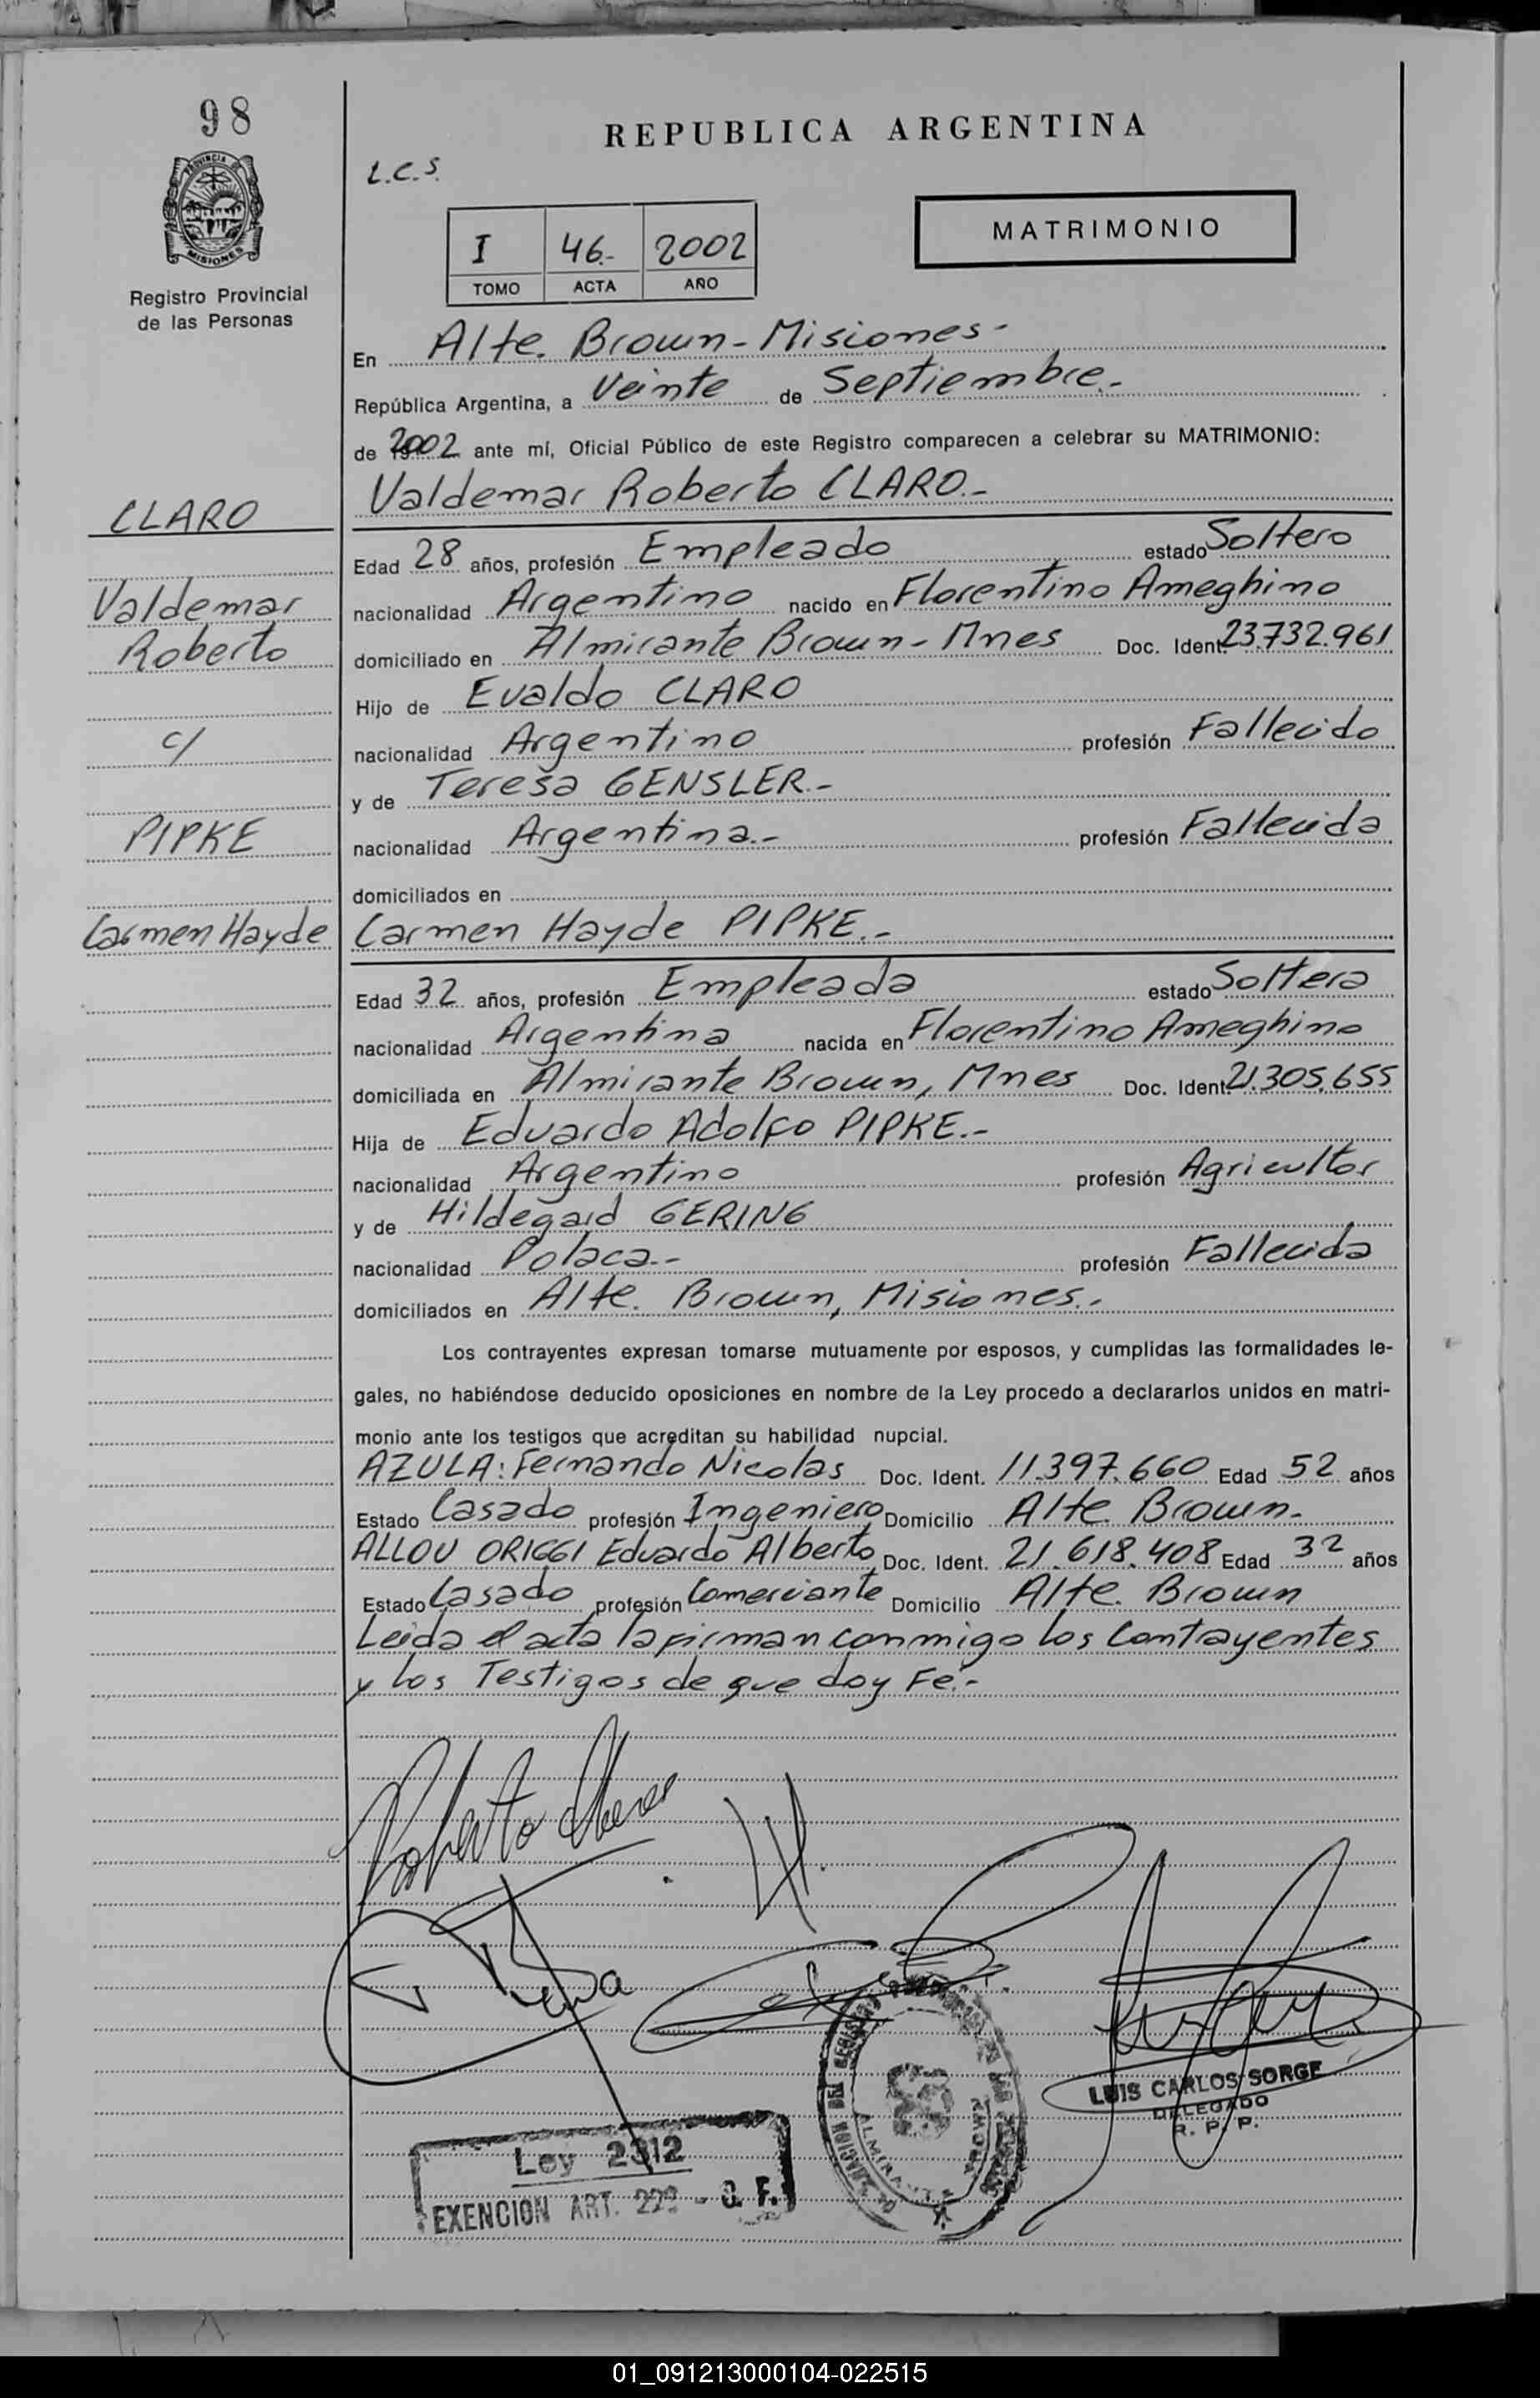 98
REPUBLICA ARGENTINA
L.C.S.
PROVINCIA DE
MISIONES
Registro Provincial
de las Personas
MATRIMONIO
I 46.- 2002
TOMO ACTA AÑO
En Alte. Brown - Misiones -
República Argentina, a Veinte de Septiembre.-
de 2002 ante mí, Oficial Público de este Registro comparecen a celebrar su MATRIMONIO:
CLARO
Valdemar
Roberto
c/
PIPKE
Carmen Hayde
Valdemar Roberto CLARO.-
Edad 28 años, profesión Empleado estado Soltero
nacionalidad Argentino nacido en Florentino Ameghino
domiciliado en Almirante Brown - Mnes Doc. Ident. 23.732.961
Hijo de Evaldo CLARO
nacionalidad Argentino profesión Fallecido
y de Teresa GENSLER.-
nacionalidad Argentina.- profesión Fallecida
domiciliados en
Carmen Hayde PIPKE.-
Edad 32 años, profesión Empleada estado Soltera
nacionalidad Argentina nacida en Florentino Ameghino
domiciliada en Almirante Brown, Mnes Doc. Ident. 21.305.655
Hija de Eduardo Adolfo PIPKE.-
nacionalidad Argentino profesión Agricultor
y de Hildegard GERING
nacionalidad Polaca.- profesión Fallecida
domiciliados en Alte. Brown, Misiones.-
Los contrayentes expresan tomarse mutuamente por esposos, y cumplidas las formalidades le-
gales, no habiéndose deducido oposiciones en nombre de la Ley procedo a declararlos unidos en matri-
monio ante los testigos que acreditan su habilidad nupcial.
AZULA: Fernando Nicolas Doc. Ident. 11.397.660 Edad 52 años
Estado Casado profesión Ingeniero Domicilio Alte. Brown.-
ALLOU ORIGGI Eduardo Alberto Doc. Ident. 21.618.408 Edad 32 años
Estado Casado profesión Comerciante Domicilio Alte. Brown
Leida el acta la firman conmigo los Contrayentes
y los Testigos de que doy Fe.-
Roberto
LUIS CARLOS SORGE
DELEGADO
R. P. P.
Ley 2312
EXENCION ART. 222 - C. F.
01_091213000104-022515